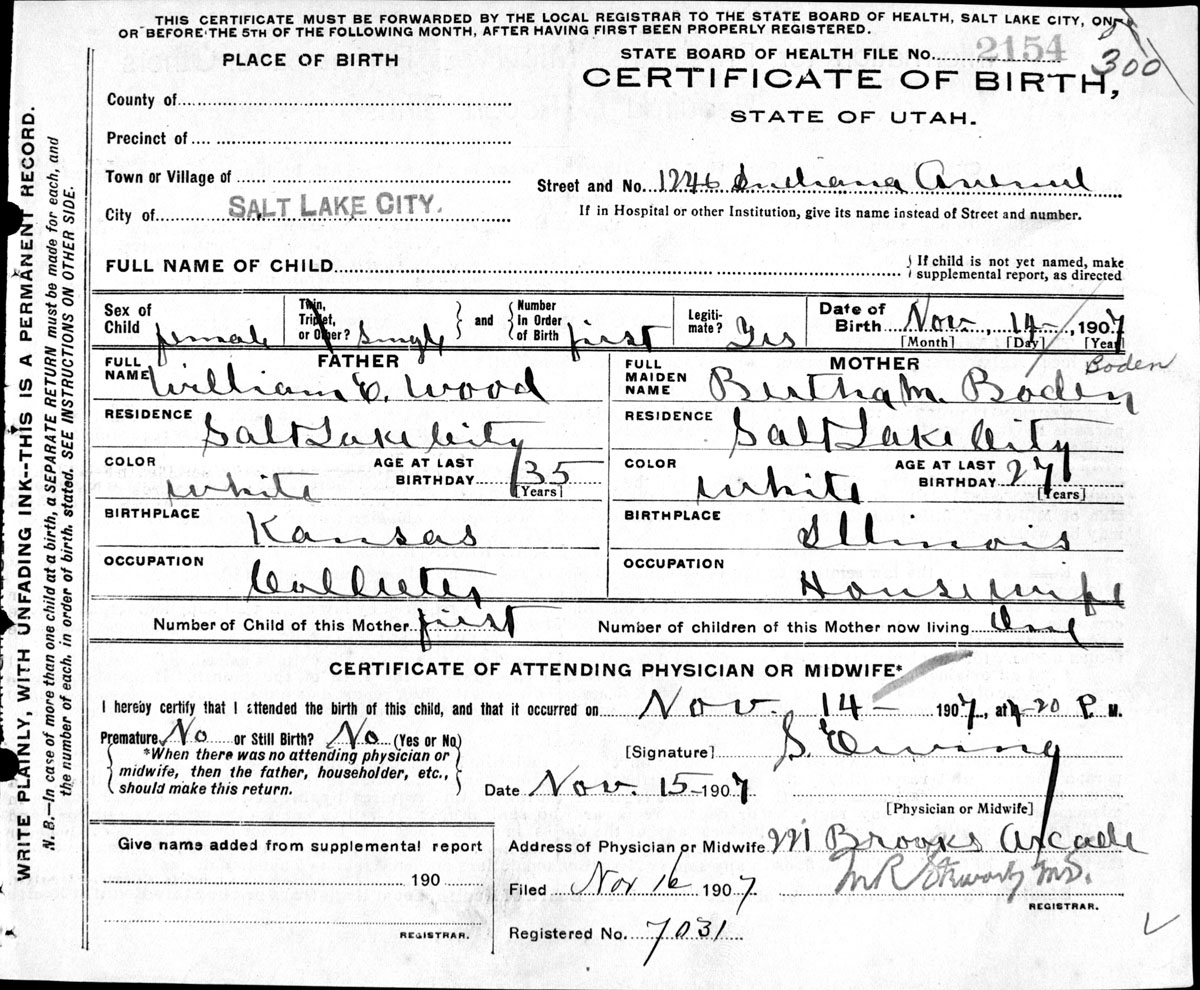 THIS CERTIFICATE MUST BE FORWARDED BY THE LOCAL REGISTRAR TO THE STATE BOARD OF HEALTH, SALT LAKE CITY, ON
OR BEFORE THE 5TH OF THE FOLLOWING MONTH, AFTER HAVING FIRST BEEN PROPERLY REGISTERED.
PLACE OF BIRTH
STATE BOARD OF HEALTH FILE No. 2154
300
CERTIFICATE OF BIRTH,
STATE OF UTAH.
County of
Precinct of
Town or Village of
City of SALT LAKE CITY.
Street and No. 1246 Indiana Avenue
If in Hospital or other Institution, give its name instead of Street and number.
FULL NAME OF CHILD
If child is not yet named, make
supplemental report, as directed
Sex of Child female
Twin, Triplet, or Other? Single
and
Number In Order of Birth first
Legiti-mate? Yes
Date of Birth Nov. 14 1907
[Month] [Day] [Year]
FATHER
FULL NAME William E. Wood
RESIDENCE Salt Lake City
COLOR white
AGE AT LAST BIRTHDAY 35 [Years]
BIRTHPLACE Kansas
OCCUPATION Collector
MOTHER
Boden
FULL MAIDEN NAME Bertha M. Boden
RESIDENCE Salt Lake City
COLOR white
AGE AT LAST BIRTHDAY 27 [Years]
BIRTHPLACE Illinois
OCCUPATION Housewife
Number of Child of this Mother first
Number of children of this Mother now living One
CERTIFICATE OF ATTENDING PHYSICIAN OR MIDWIFE*
I hereby certify that I attended the birth of this child, and that it occurred on Nov. 14 - 1907, at -20 P. M.
Premature No or Still Birth? No (Yes or No)
*When there was no attending physician or
midwife, then the father, householder, etc.,
should make this return.
[Signature] S. Ewing
Date Nov. 15 - 1907
[Physician or Midwife]
Give name added from supplemental report
190
REGISTRAR.
Address of Physician or Midwife Brooks Arcade
Filed Nov 16 1907
M.D.
REGISTRAR.
Registered No. 7031
WRITE PLAINLY, WITH UNFADING INK--THIS IS A PERMANENT RECORD.
N. B.--In case of more than one child at a birth, a SEPARATE RETURN must be made for each, and
the number of each, in order of birth, stated. SEE INSTRUCTIONS ON OTHER SIDE.